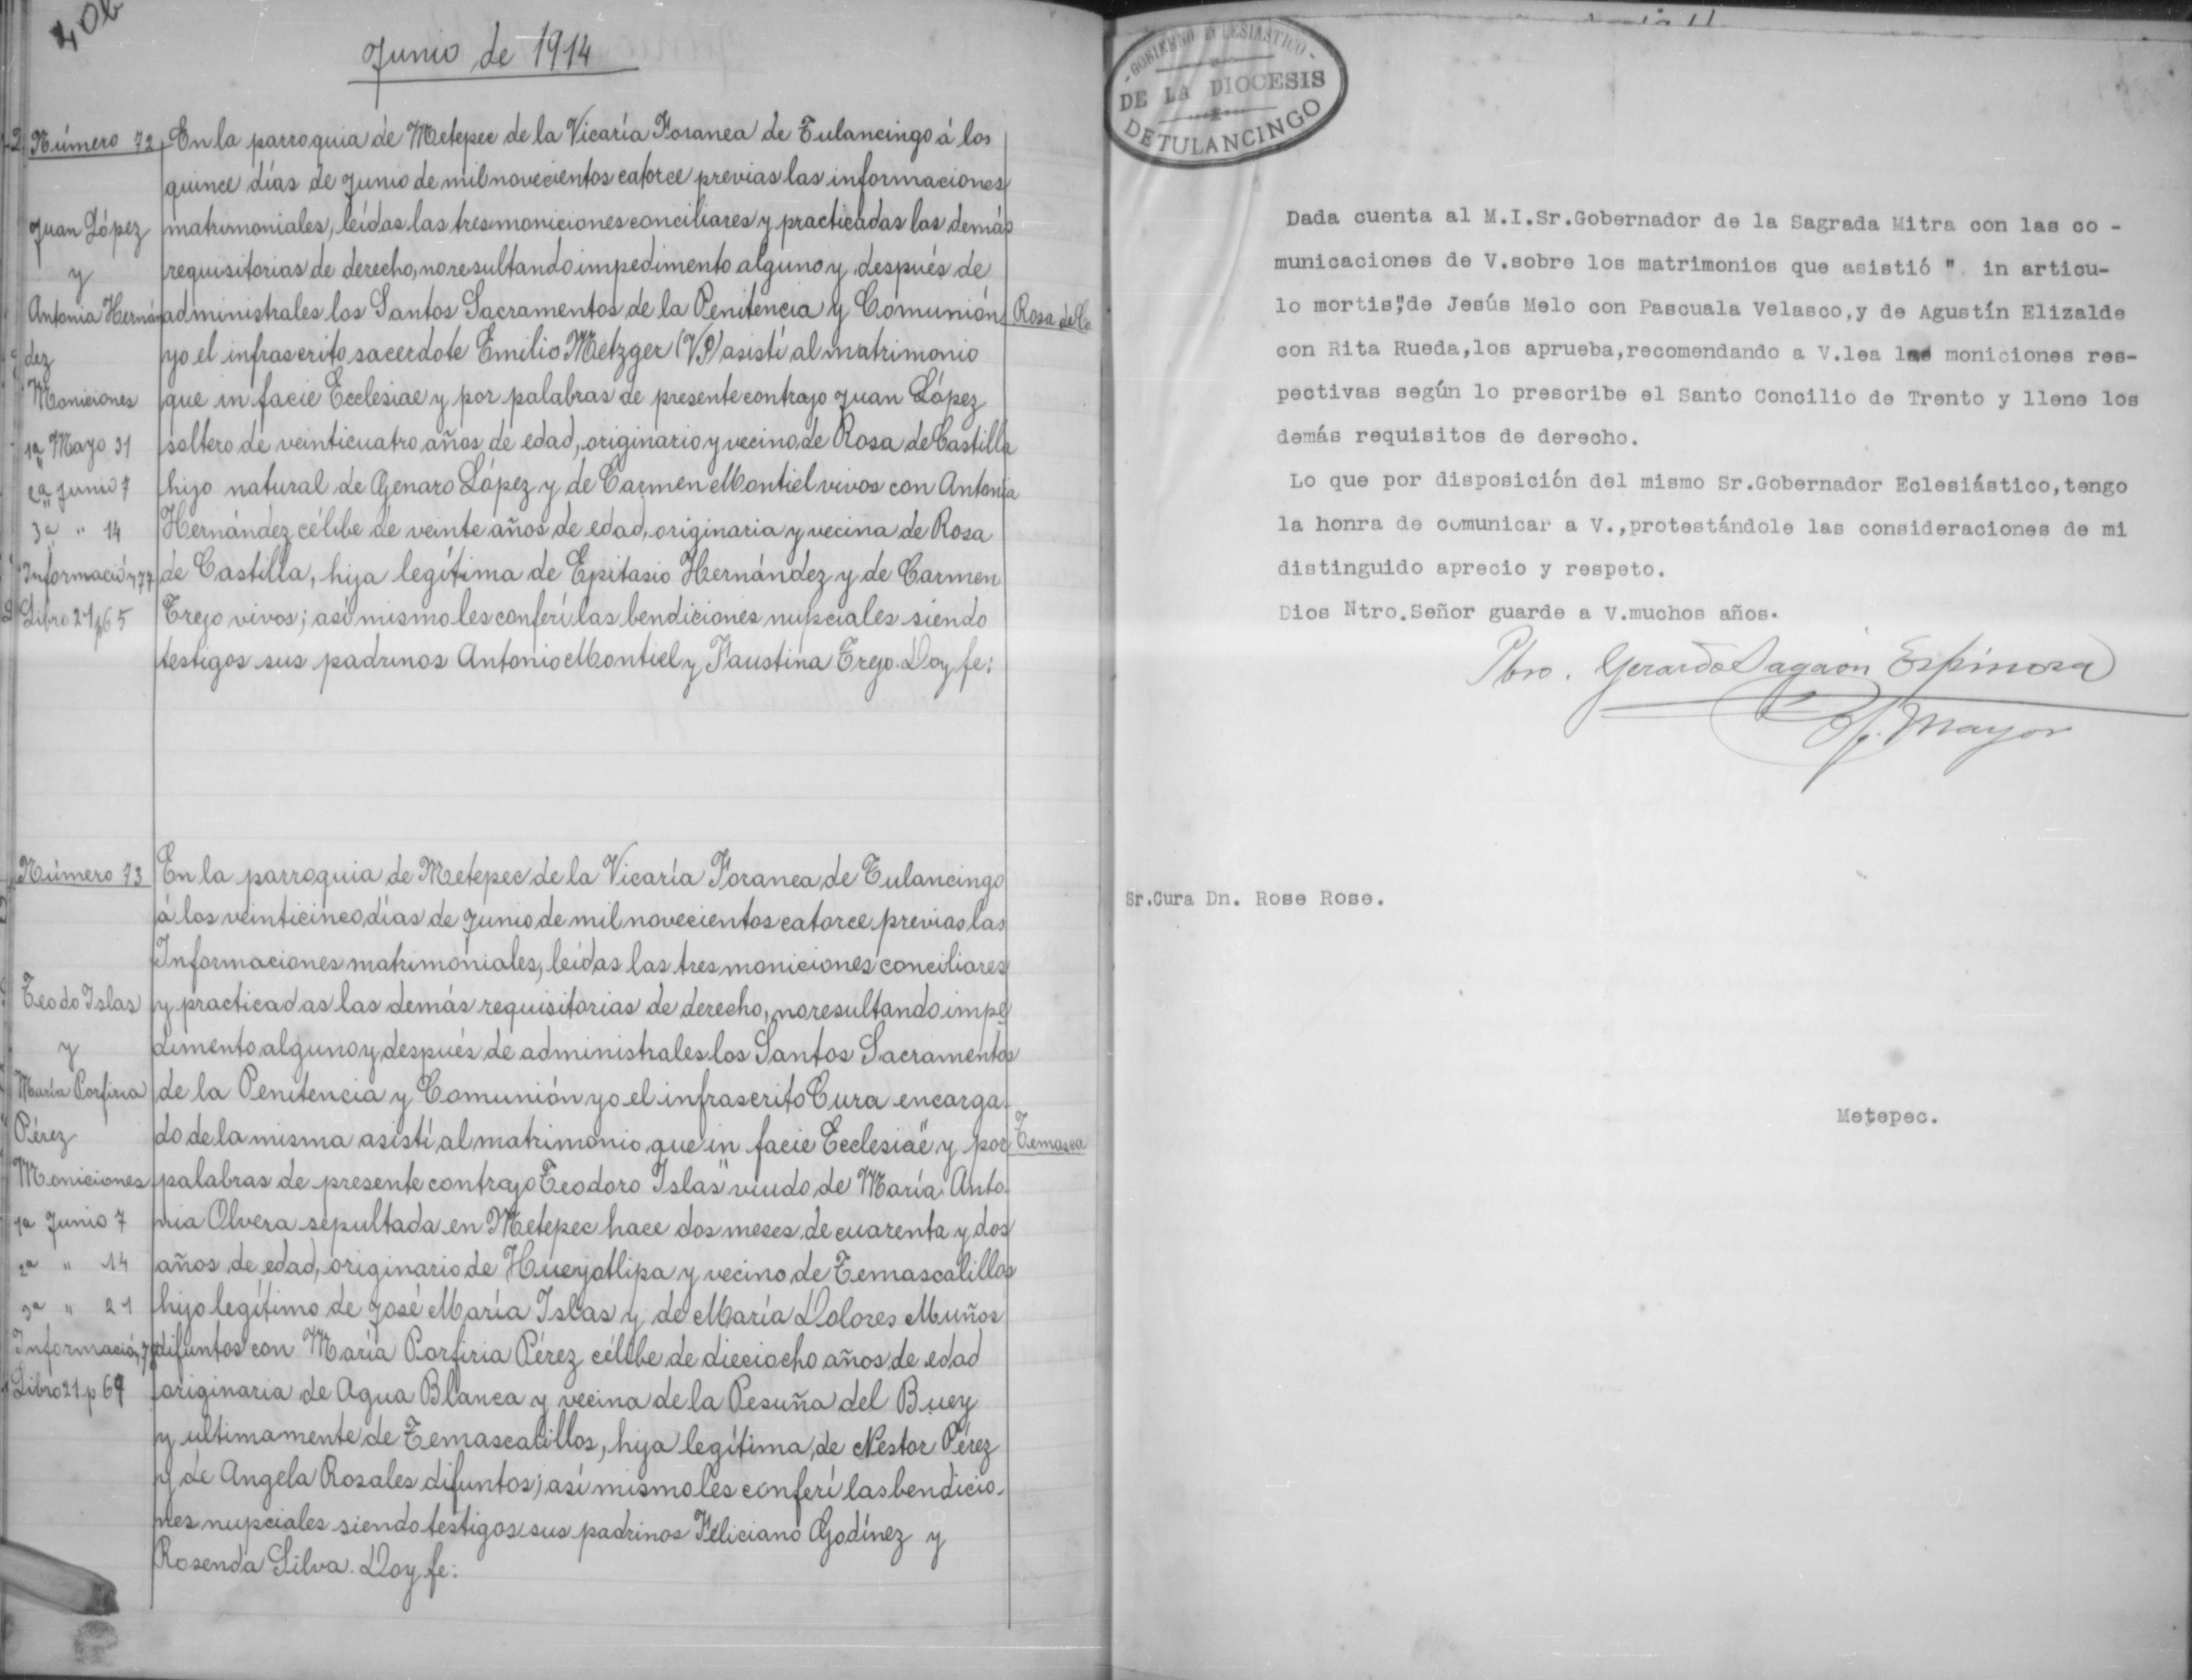 406
Junio de 1914
Número 72
Juan López
y
Antonia Hernán
dez
Moniciones
1a Mayo 31
2a Junio 7
3a " 14
Información 77
Libro 21 p 65
En la parroquia de Metepec de la Vicaría Foranea de Tulancingo á los
quince días de Junio de mil novecientos catorce previas las informaciones
matrimoniales, leídas las tres moniciones conciliares y practicadas las demás
requisitorias de derecho, no resultando impedimento alguno y después de
administrales los Santos Sacramentos de la Penitencia y Comunión
yo el infrascrito sacerdote Emilio Metzger (V.P) asistí al matrimonio
que in facie Ecclesiae y por palabras de presente contrajo Juan López
soltero de veinticuatro años de edad, originario y vecino de Rosa de Castilla
hijo natural de Genaro López y de Carmen Montiel vivos con Antonia
Hernández célibe de veinte años de edad, originaria y vecina de Rosa
de Castilla, hija legítima de Epitasio Hernández y de Carmen
Trejo vivos; así mismo les conferí las bendiciones nupciales siendo
testigos sus padrinos Antonio Montiel y Faustina Trejo. Doy fe:
Rosa de Ca
Número 73
Teodo Islas
y
María Porfiria
Pérez
Moniciones
1a Junio 7
2a " 14
3a " 21
Información
Libro 21 p 69
En la parroquia de Metepec de la Vicaría Foranea de Tulancingo
á los veinticinco días de Junio de mil novecientos catorce previas las
Informaciones matrimoniales, leídas las tres moniciones conciliares
y practicadas las demás requisitorias de derecho, no resultando impe
dimento alguno y después de administrales los Santos Sacramentos
de la Penitencia y Comunión yo el infrascrito Cura encarga
do de la misma asistí al matrimonio que "in facie Ecclesiae" y por
palabras de presente contrajo Teodoro Islas viudo de María Anto
nia Olvera sepultada en Metepec hace dos meses de cuarenta y dos
años de edad, originario de Hueyotlipa y vecino de Temascalillos
hijo legítimo de José María Islas y de María Dolores Muños
difuntos con María Porfiria Pérez célibe de dieciocho años de edad
originaria de Agua Blanca y vecina de la Pesuña del Buey
y ultimamente de Temascalillos, hija legítima, de Nestor Pérez
y de Angela Rosales difuntos; así mismo les conferí las bendicio-
nes nupciales siendo testigos sus padrinos Feliciano Godínez y
Rosenda Silva. Doy fe:
Temasca
- GOBIERNO ECLESIASTICO -
DE LA DIOCESIS
DE TULANCINGO
Dada cuenta al M.I.Sr.Gobernador de la Sagrada Mitra con las co -
municaciones de V.sobre los matrimonios que asistió " in articu-
lo mortis", de Jesús Melo con Pascuala Velasco, y de Agustín Elizalde
con Rita Rueda, los aprueba, recomendando a V.lea las moniciones res-
pectivas según lo prescribe el Santo Concilio de Trento y llene los
demás requisitos de derecho.
Lo que por disposición del mismo Sr.Gobernador Eclesiástico, tengo
la honra de comunicar a V., protestándole las consideraciones de mi
distinguido aprecio y respeto.
Dios Ntro.Señor guarde a V.muchos años.
Pbro. Gerardo Sagaón Espinosa
Of. Mayor
Sr.Cura Dn. Rose Rose.
Metepec.